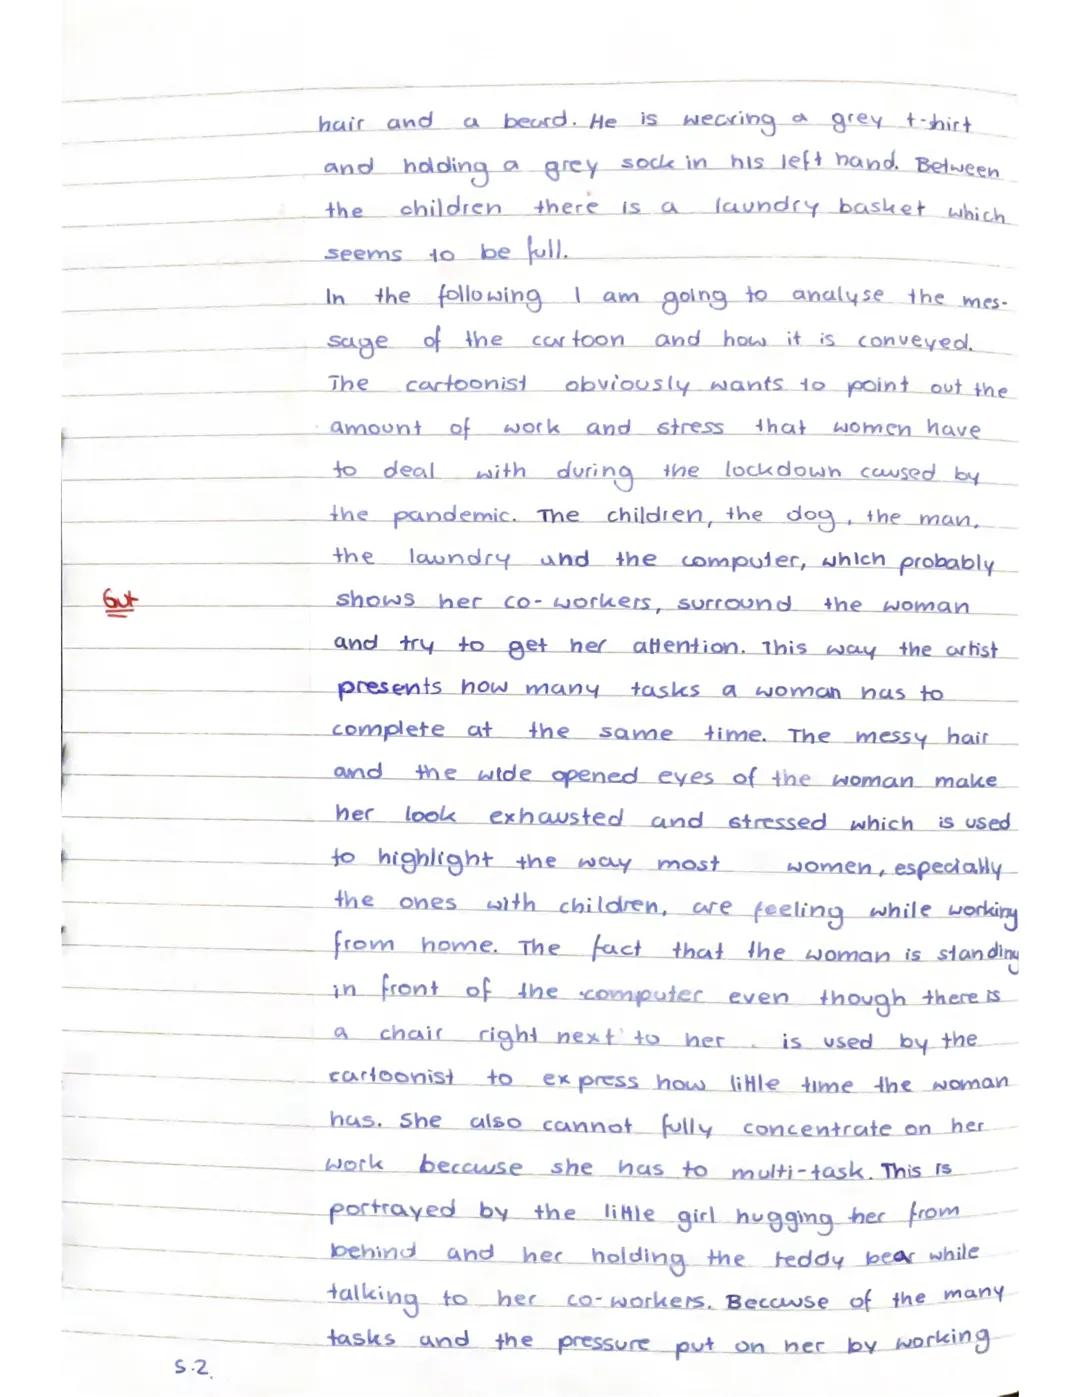 hair and a beard. He is wearing a grey t-shirt
and holding a grey sock in his left hand. Between
the children there is a laundry basket which
seems to be full.
In the following I am going to analyse the mes-
sage of the cartoon and how it is conveyed.
The cartoonist obviously wants to point out the
amount of work and stress that women have
to deal with during the lockdown caused by
the pandemic. The children, the dog, the man,
the laundry and the computer, which probably
Gut
shows her co-workers, surround the woman
and try to get her attention. This way the artist
presents how many tasks a woman has to
complete at the same time. The messy hair
and the wide opened eyes of the woman make
her look exhausted and stressed which is used
to highlight the way most women, especially
the ones with children, are feeling while working
from home. The fact that the woman is standing
in front of the computer even though there is
a chair right next to her is used by the
cartoonist to express how little time the woman
has. She also cannot fully concentrate on her
work because she has to multi-task. This is
portrayed by the little girl hugging her from
behind and her holding the teddy bear while
talking to her co-workers. Because of the many
tasks and the pressure put on her by working
S.2.